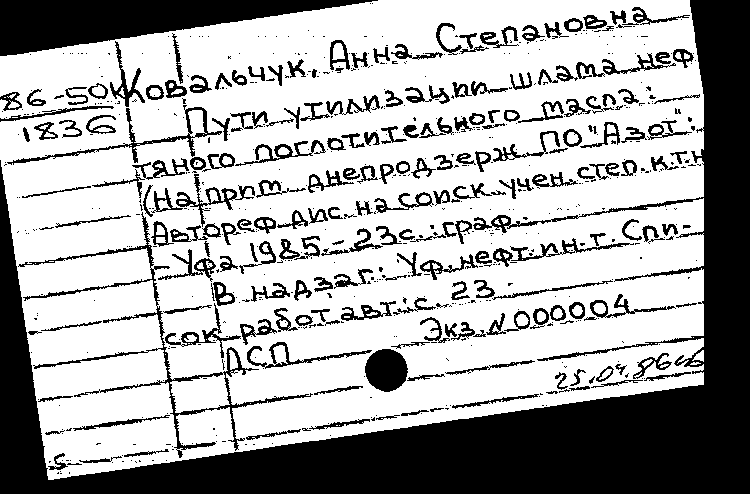 86-50к
1836
Ковальчук, Анна Степановна
Пути утилизации шлама неф
тяного поглотительного масла:
(На прим. днепродзерж ПО "Азот":
Автореф дис. на соиск учен. степ. к.т.н
- Уфа, 1985. - 23с. : граф. -
В надзаг.: Уф. нефт. ин. т. Спи-
сок работ авт.: с. 23.
Экз. N 000004
ДСП
25.04.86
5